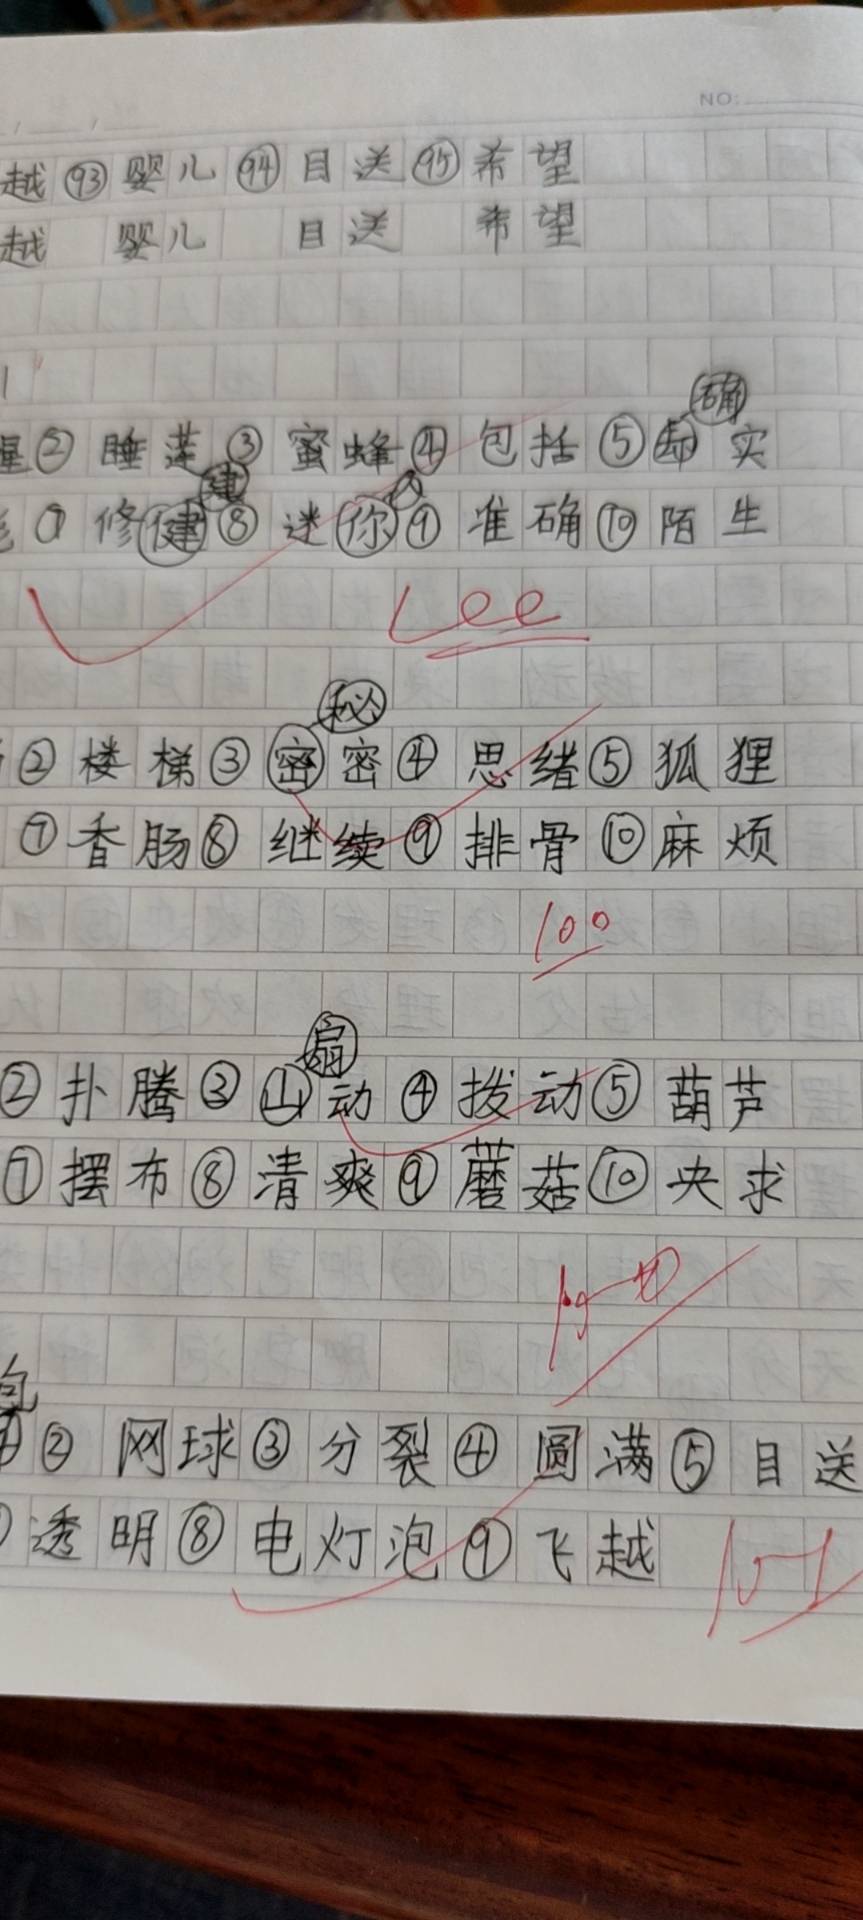 NO:
越 ㊈㊂ 婴儿 94 目送 95 希望
越 婴儿 目送 希望
确
② 睡莲 ③ 蜜蜂 ④ 包括 ⑤ 却实
建
修健 ⑧ 迷你 ⑨ 准确 ⑩ 陌生
Lee
秘
② 楼梯 ③ 密密 ④ 思绪 ⑤ 狐狸
⑦ 香肠 ⑧ 继续 ⑨ 排骨 ⑩ 麻烦
100
扇
② 扑腾 ③ 山动 ④ 拨动 ⑤ 葫芦
⑦ 摆布 ⑧ 清爽 ⑨ 蘑菇 ⑩ 央求
包
② 网球 ③ 分裂 ④ 圆满 ⑤ 目送
透明 ⑧ 电灯泡 ⑨ 飞越